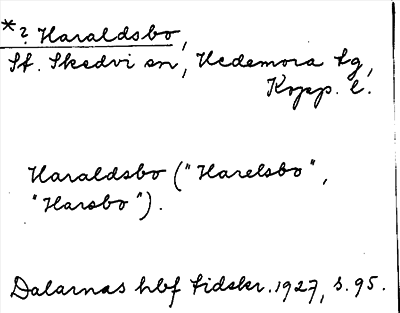 *? Haraldsbo,
St. Skedvi sn, Hedemora tg,
Kopp. l.
Haraldsbo ("Harelsbo",
"Harsbo").
Dalarnas hbf tidskr. 1927, s. 95.